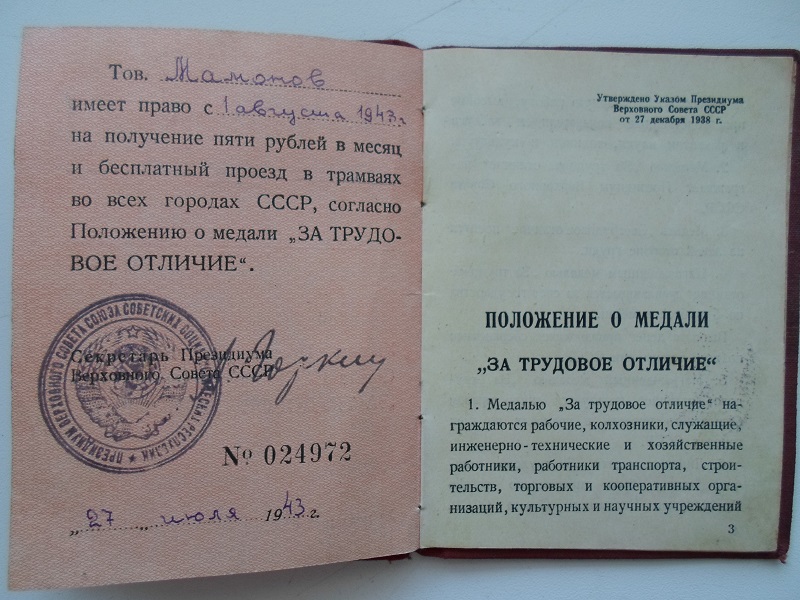 Тов. Мамонов
имеет право с 1 августа 1943 г.
на получение пяти рублей в месяц
и бесплатный проезд в трамваях
во всех городах СССР, согласно
Положению о медали „ЗА ТРУДО-
ВОЕ ОТЛИЧИЕ“.
Секретарь Президиума
Верховного Совета СССР
ПРЕЗИДИУМ ВЕРХОВНОГО СОВЕТА СОЮЗА СОВЕТСКИХ СОЦИАЛИСТИЧЕСКИХ РЕСПУБЛИК
№ 024972
„27„ июля 1943 г.
Утверждено Указом Президиума
Верховного Совета СССР
от 27 декабря 1938 г.
ПОЛОЖЕНИЕ О МЕДАЛИ
„ЗА ТРУДОВОЕ ОТЛИЧИЕ“
1. Медалью „За трудовое отличие“ на-
граждаются рабочие, колхозники, служащие,
инженерно-технические и хозяйственные
работники, работники транспорта, строи-
тельств, торговых и кооперативных орга-
низаций, культурных и научных учреждений
3